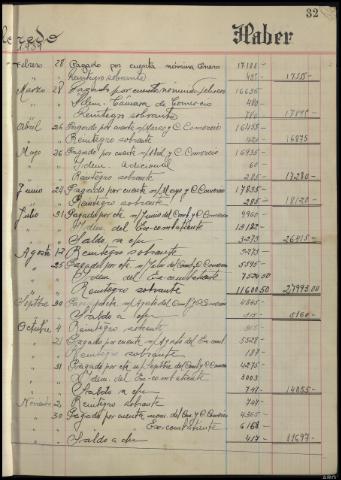 32
Haber
1939
Febrero 28 Pagado por cuenta nómina Enero 17100-
" Reintegro sobrante 17555-
Marzo 28 Pagado por cuenta nómina febrero 16635-
" Idem. Cámara de Comercio 480-
" Reintegro sobrante
Abril 26 Pagado por cuenta n/ Marzo y C. Comercio 16455-
" Reintegro sobrante 420- 16875
Mayo 26 Pagado por cuenta n/ Abril y C. Comercio 16935-
" Idem. adicional 60-
" Reintegro sobrante 285- 17280-
Junio 24 Pagado por cuenta n/ Mayo y C. Comercio 17835-
" Reintegro sobrante 285- 18120-
Julio 31 Pagado por cte n/ Junio del Comb. y C. Comercio 9960-
" Idem. del Ex-combatiente 13182-
" Saldo n cta 3273- 26415-
Agosto 17 Reintegro sobrante 3273-
" 25 Pagado por cte n/ Julio del Comb. y C. Comercio 5595-
" Idem del Ex-combatiente 7524.50
" Reintegro sobrante 11600.50 27993.00
Septbre 30 n/ Agosto del Comb. y C. Comercio 4845-
" Saldo a cta 315- 5160-
Octubre 4 Reintegro sobrante 315-
" 21 Pagado por cuenta n/ Agosto del Ex-comb 5528-
" Reintegro sobrante 187-
" 31 Pagado por cte n/ Septbre del Comb. y C. Comercio 4275-
" Idem. del Ex-combatiente 3003
" Saldo n cta 747- 14055-
Noviembre 2 Reintegro sobrante 747-
" 30 Pagado por cuenta nom. del Com. y C. Comercio 4365-
" Ex-combatiente 6168-
" Saldo a cta 417- 11697-